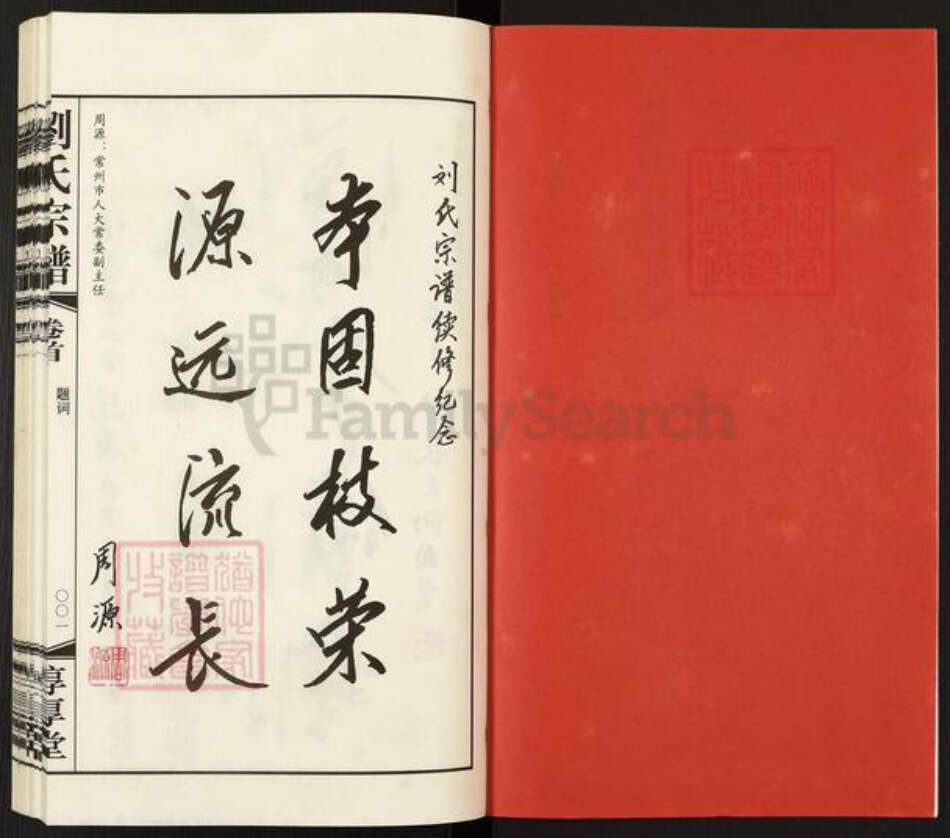 刘氏宗谱续修纪念
本固枝荣
源远流长
周源
周源：常州市人大常委副主任
劉氏宗譜
卷首
题词
〇〇一
惇厚堂
FamilySearch